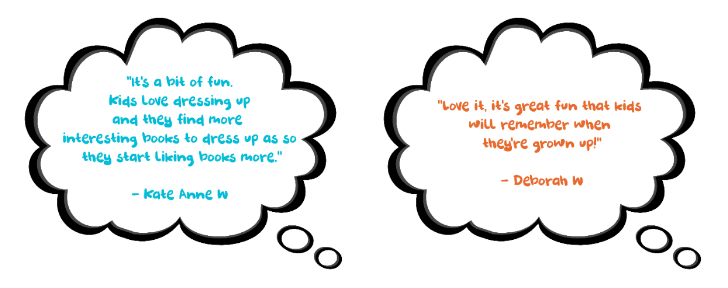 "It's a bit of fun.
Kids love dressing up
and they find more
interesting books to dress up as so
they start liking books more."
- Kate Anne W
"Love it, it's great fun that kids
will remember when
they're grown up!"
- Deborah W